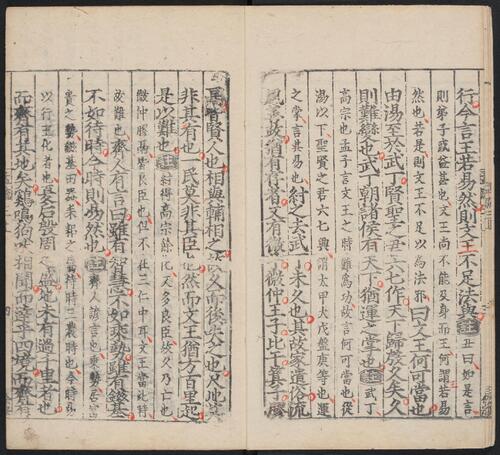 行今言王若易然則文王不足法與註丑曰如是言
則弟子惑益甚也文王尚不能及身而王何謂若易
然也若是則文王不足以為法邪曰文王何可當也
由湯至於武丁賢聖之君六七作天下歸殷久矣久
則難變也武丁朝諸侯有天下猶運之掌也註武丁
高宗也孟子言文王之時難為功故言何可當也從
湯以下聖賢之君六七興謂太甲太戊盤庚等也運
之掌言其易也紂之去武丁未久也其故家遺俗流
風善政猶有存者又有微子微仲王子比干箕子膠
鬲皆賢人也相與輔相之故久而後失之也尺地莫
非其有也一民莫非其臣也然而文王猶方百里起
是以難也註紂得高宗餘化又多良臣故久乃亡也
微仲膠鬲皆良臣也但不在三仁中耳文王當此時
故難也齊人有言曰雖有智慧不如乘勢雖有鎡基
不如待時今時則易然也註齊人諺言也乘勢居富
貴之勢鎡基田器耒耜之屬待時三農時也今時易
以行王化者也夏后殷周之盛地未有過千里者也
而齊有其地矣雞鳴狗吠相聞而達乎四境而齊有